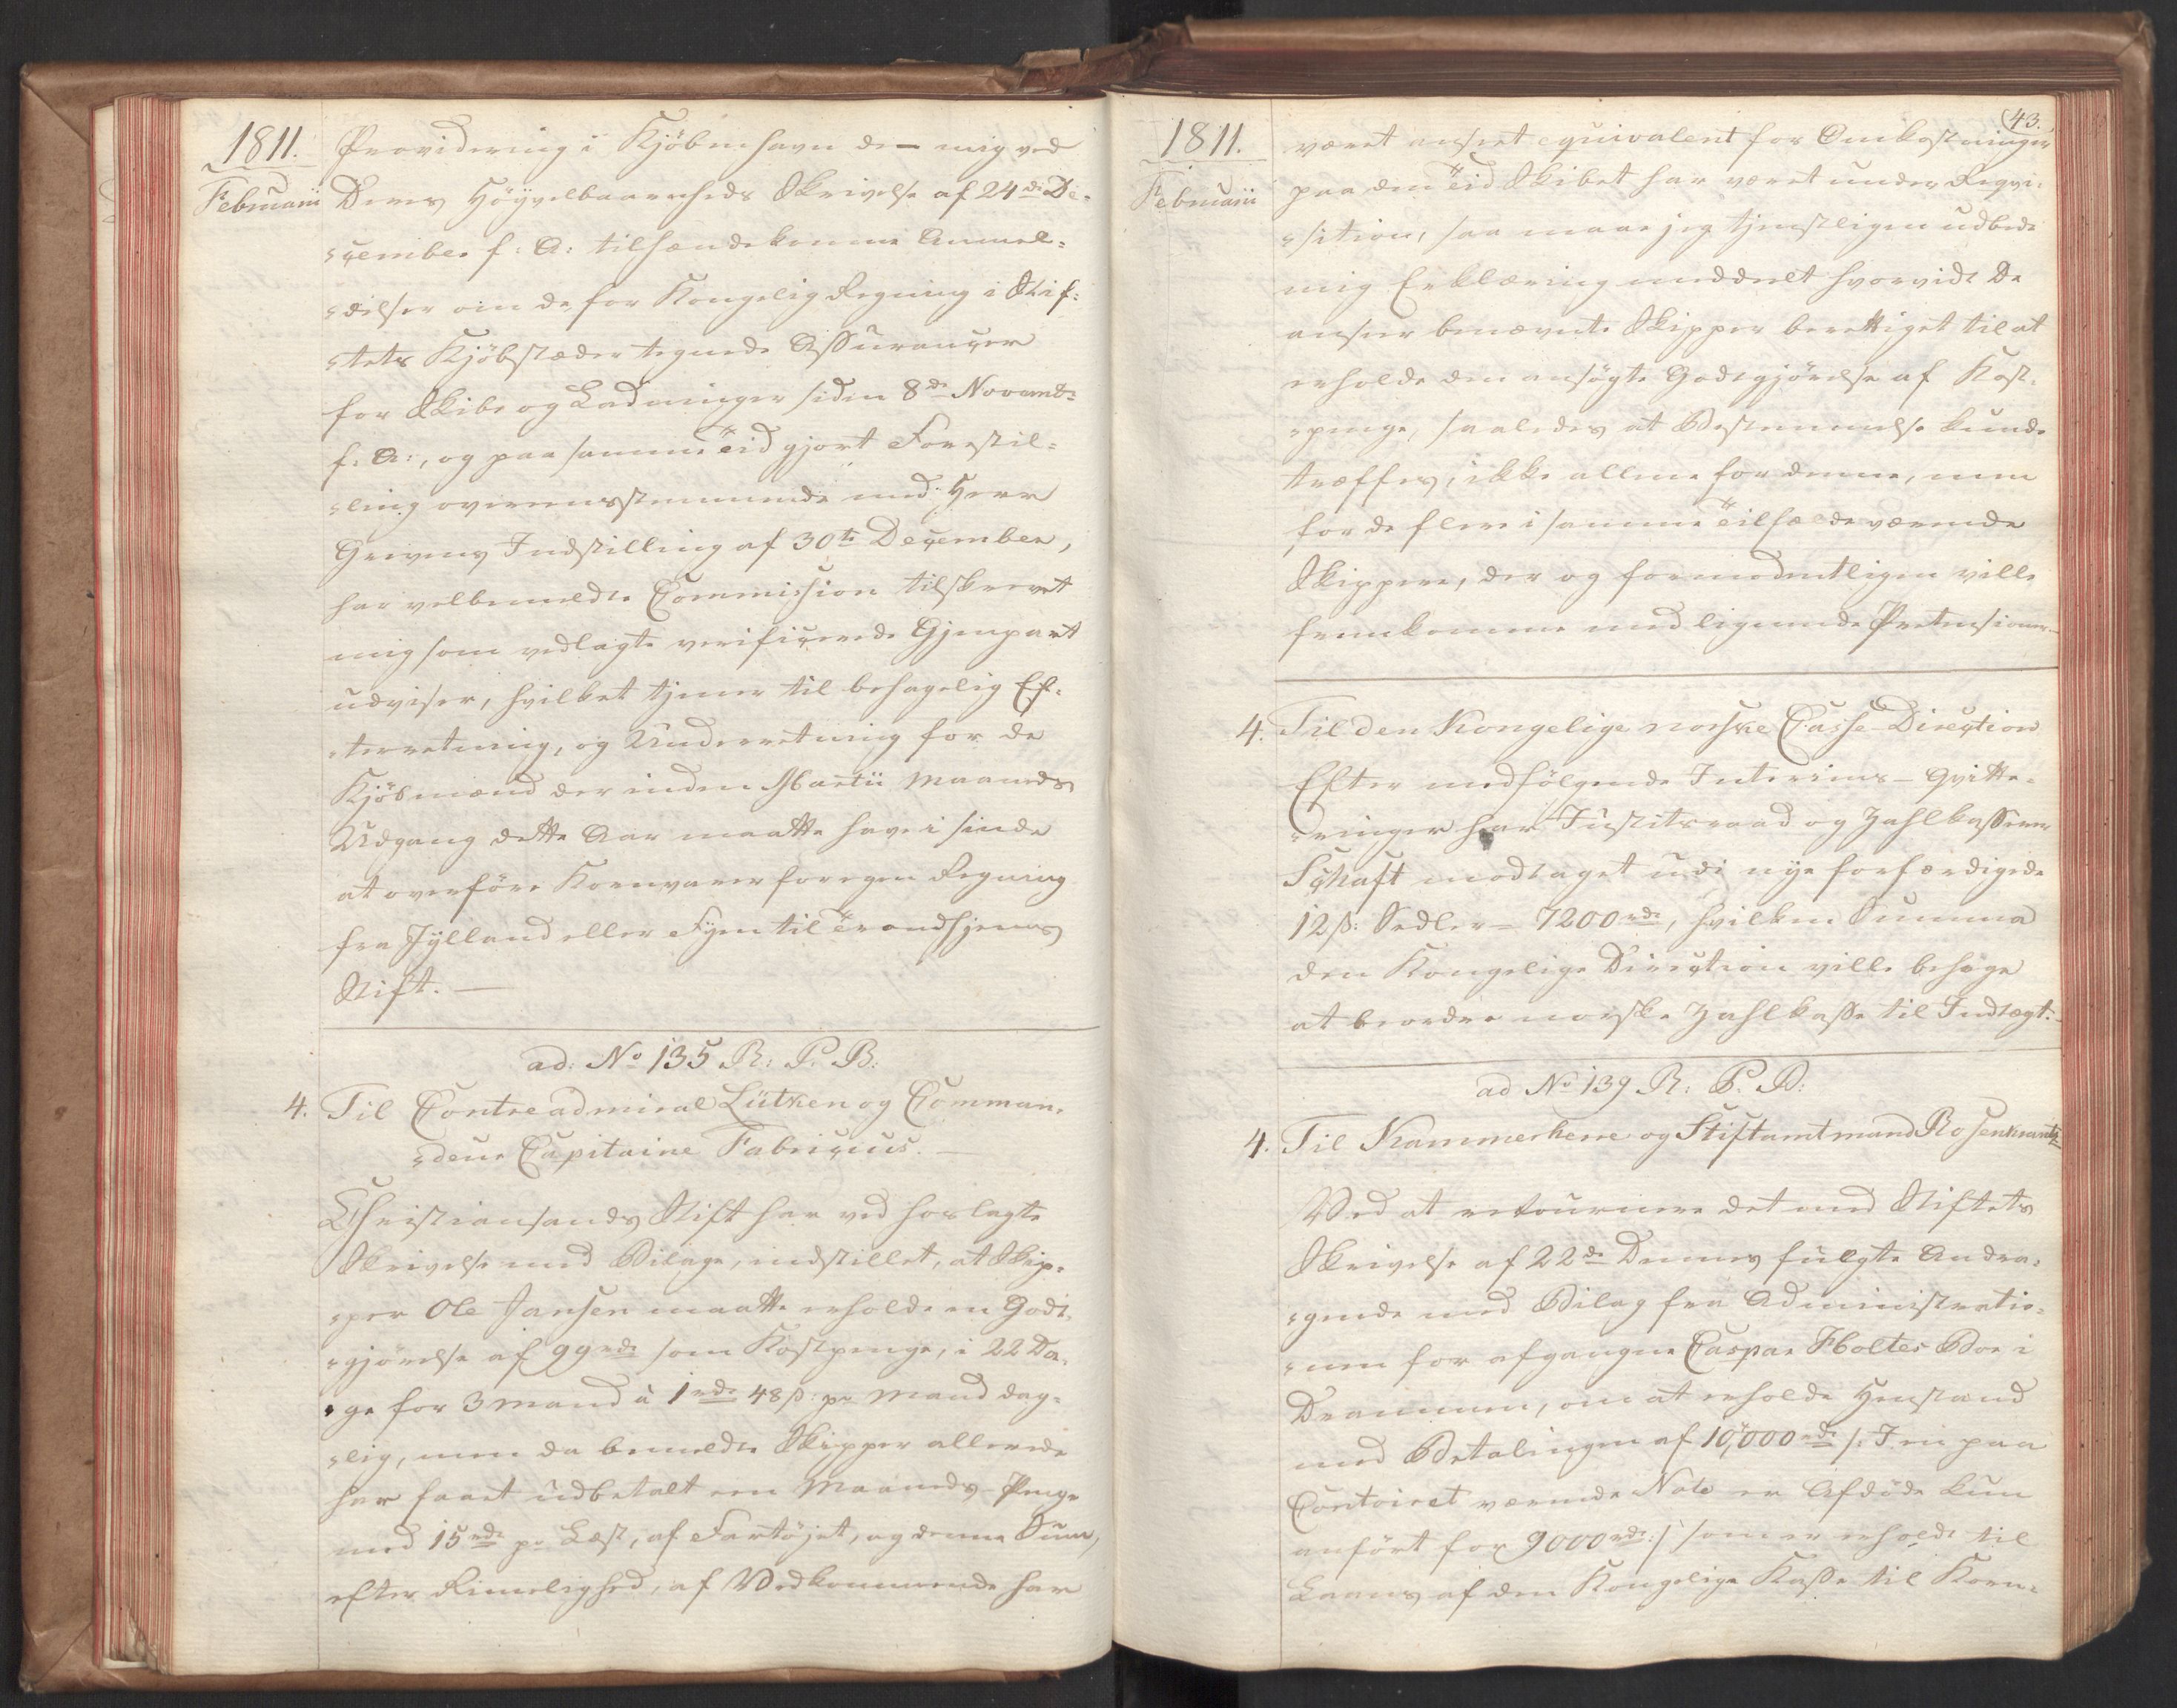 1811.
Februarii
Providering i Kjöbenhavn de mig ved
Deres Höyvelbaarenheds Skrivelse af 24de De-
-cember f: A: tilhændekomne Anmel-
-delser om de for Kongelig Regning i Stif-
-tets Kjöbstæder tegnede Assurancer
for Skibe og Ladninger siden 8de Novembr
f: A:, og paa samme Tid gjort Forestil-
-ling overeensstemmende med Herr
Grevens Indstilling af 30te December,
har velbemeldte Commission tilskrevet
mig som vedlagte verificerede Gjenpart
udviser, hvilket tjener til behagelig Ef-
-terretning, og Underretning for de
Kjöbmænd der inden Martii Maaneds
Udgang dette Aar maatte have i sinde
at overföre Kornvarer for egen Regning
fra Jylland eller Fyen til Trondhjems
Stift. —
ad: No 135 R: P. B:
4. Til Contreadmiral Lütken og Comman-
-deur Capitaine Fabricius. —
Christiansands Stift har ved hoslagte
Skrivelse med Bilage, indstillet, at Skip-
-per Ole Jansen maatte erholde en Godt-
-gjörelse af 99 rdr som Kostpenge, i 22 Da-
-ge for 3 Mand à 1 rdr 48 ß: pr Mand dag-
-lig, men da bemeldte Skipper allerede
har faaet udbetalt een Maaneds-Penge
med 15 rdr pr Læst, af Fartöjet, og denne Sum,
efter Rimelighed, af Vedkommende har
43.
1811.
Februarii
været anseet equivalent for Omkostninger
paa den Tid Skibet har været under Reqvi-
-sition, saa maae jeg tjenstligen udbede
mig Erklæring meddeelt hvorvidt De
anseer benævnte Skipper berettiget til at
erholde den ansögte Godtgjörelse af Kost-
-penge, saaledes at Bestemmelse kunde
træffes, ikke allene for denne, men
for de flere i samme Tilfælde værende
Skippere, der og formodentligen ville
fremkomme med lignende Prætensioner
4. Til den Kongelige norske Casse Direction
Efter medfölgende Interims-Qvitte-
-ringer har Justitsraad og Zahlkasserer
Schaft modtaget udi nye forfærdigede
12 ß: Sedler - 7200 rdr, hvilken Summa
den Kongelige Direction ville behage
at beordre norske Zahlkasse til Indtægt.
ad No 139 R: P. B:
4. Til Kammerherre og Stiftamtmand Rosenkrantz
Ved at retournere det med Stiftets
Skrivelse af 22de Dennes fulgte Andra-
-gende med Bilag fra Administratio-
-nen for afgangne Caspar Holtes Boe i
Drammen, om at erholde Henstand
med Betalingen af 10,000 rdr /: I en paa
Contoiret værende Note er Afdöde kun
anfört for 9000 rdr :/ som er erholdt til
Laans af den Kongelige Kasse til Korn-